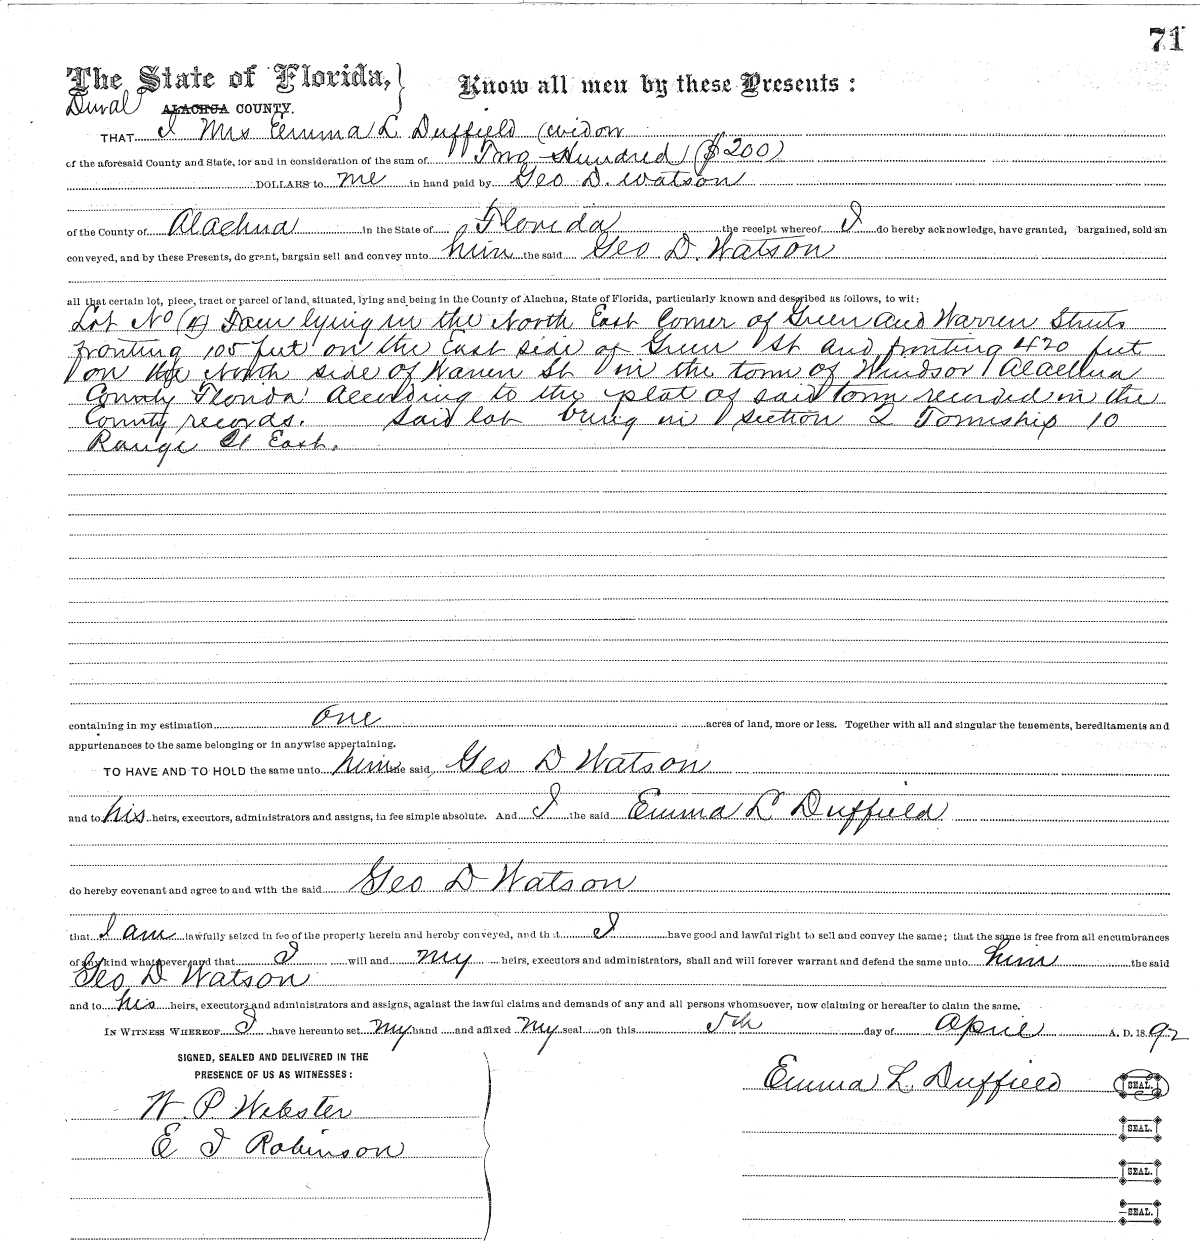 71
The State of Florida, Know all men by these Presents:
Duval ALACHUA COUNTY.
THAT I Mrs Emma L. Duffield (widow
of the aforesaid County and State, for and in consideration of the sum of Two Hundred ($200)
DOLLARS to me in hand paid by Geo D. Watson
of the County of Alachua in the State of Florida the receipt whereof I do hereby acknowledge, have granted, bargained, sold an
conveyed, and by these Presents, do grant, bargain sell and convey unto him the said Geo D. Watson
all that certain lot, piece, tract or parcel of land, situated, lying and being in the County of Alachua, State of Florida, particularly known and described as follows, to wit:
Lot No (4) Four lying in the North East Corner of Green and Warren Streets
fronting 105 feet on the East side of Green St and fronting 420 feet
on the North side of Warren St in the town of Windsor Alachua
County Florida According to the plat of said town recorded in the
County records. Said lot being in section 2 Township 10
Range 21 East.
containing in my estimation one acres of land, more or less. Together with all and singular the tenements, hereditaments and
appurtenances to the same belonging or in anywise appertaining.
TO HAVE AND TO HOLD the same unto him the said Geo D Watson
and to his heirs, executors, administrators and assigns, in fee simple absolute. And I the said Emma L Duffield
do hereby covenant and agree to and with the said Geo D Watson
that I am lawfully seized in fee of the property herein and hereby conveyed, and that I have good and lawful right to sell and convey the same; that the same is free from all encumbrances
of any kind whatever and that I will and my heirs, executors and administrators, shall and will forever warrant and defend the same unto him the said
Geo D Watson
and to his heirs, executors and administrators and assigns, against the lawful claims and demands of any and all persons whomsoever, now claiming or hereafter to claim the same.
IN WITNESS WHEREOF I have hereunto set my hand and affixed my seal on this 5th day of April A. D. 1892
SIGNED, SEALED AND DELIVERED IN THE
PRESENCE OF US AS WITNESSES:
Emma L. Duffield SEAL.
W. P. Webster
SEAL.
E I Robinson
SEAL.
SEAL.